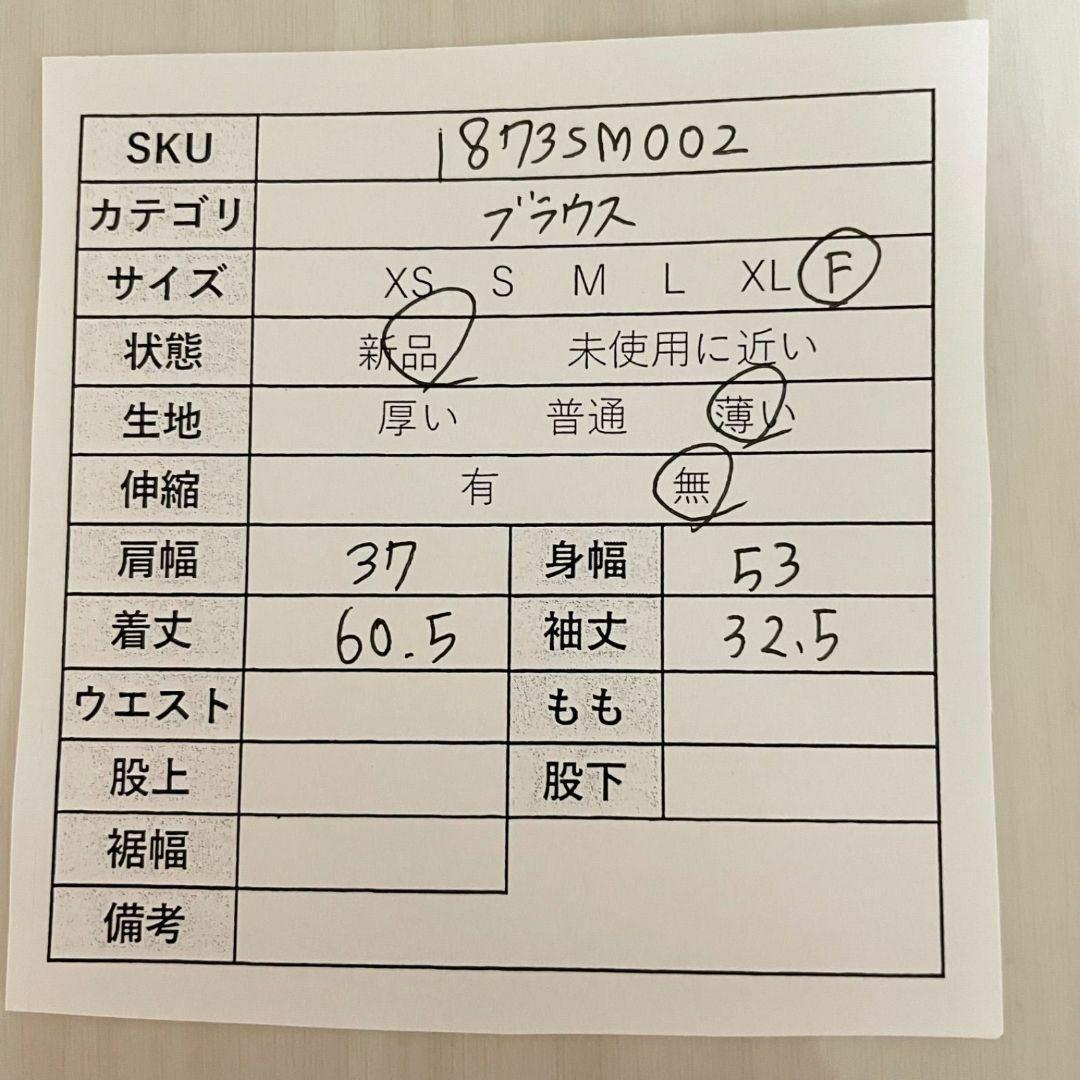 SKU 1873SM002
カテゴリ ブラウス
サイズ XS S M L XL F
状態 新品 未使用に近い
生地 厚い 普通 薄い
伸縮 有 無
肩幅 37 身幅 53
着丈 60.5 袖丈 32.5
ウエスト もも
股上 股下
裾幅
備考